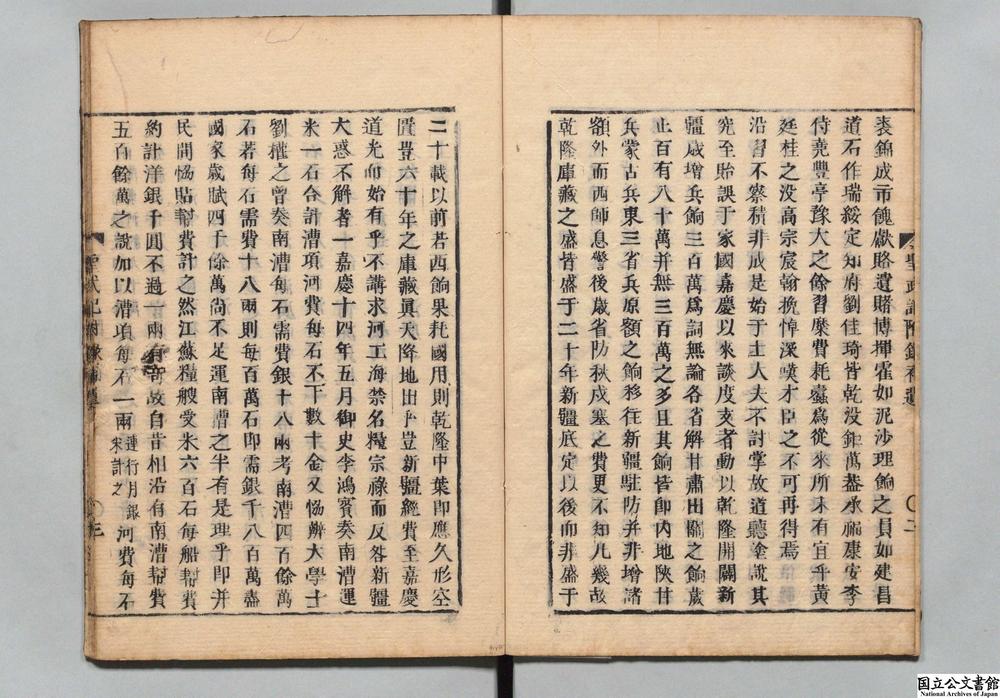 裘錦成市饋獻賂遺賭博揮霍如泥沙理餉之員如建昌
道石作瑞綏定知府劉佳琦皆乾没鉅萬葢承福康安李
侍堯豐亨豫大之餘習糜費耗蠧爲從來所未有宜乎黄
廷桂之没高宗宸翰挽悼深嘆才臣之不可再得焉
沿習不察積非成是始于士大夫不討掌故道聽塗說其
究至貽誤于家國嘉慶以來談度支者動以乾隆開闢新
疆歳增兵餉三百萬爲詞無論各省解甘肅出關之餉歳
止百有八十萬并無三百萬之多且其餉皆卽内地陜甘
兵蒙古兵東三省兵原額之餉移往新疆駐防并非增諸
額外而西師息警後歳省防秋戍塞之費更不知凡幾故
乾隆庫藏之盛皆盛于二十年新疆底定以後而非盛于
二十載以前若西餉果耗國用則乾隆中葉卽應久形空
匱豈六十年之庫藏眞天降地出乎豈新疆經費至嘉慶
道光而始有乎不講求河工海禁名糧宗祿而反咎新疆
大惑不解者一嘉慶十四年五月御史李鴻賓奏南漕運
米一石合計漕項河費每石不下數十金又協辦大學士
劉權之曾奏南漕每石需費銀十八兩考南漕四百餘萬
石若每石需費十八兩則每百萬石卽需銀千八百萬盡
國家歳賦四千餘萬尚不足運南漕之半有是理乎卽并
民間恊貼幫費計之然江蘇糧艘受米六百石每船幫費
約計洋銀千圓不過一兩有奇故自昔相沿有南漕幫費
五百餘萬之說加以漕項每石一兩連行月銀米計之河費每石
聖武記附錄補遺
三
国立公文書館
National Archives of Japan